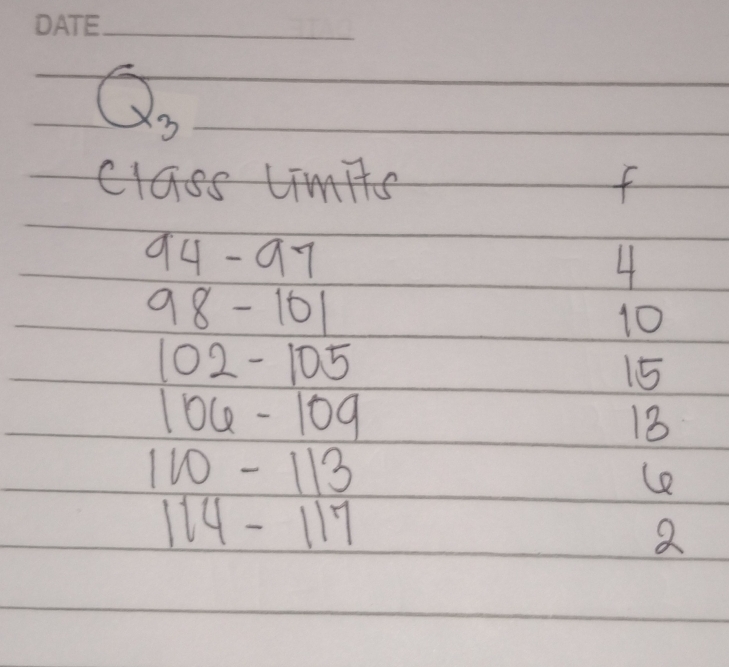 DATE
Q3
Class Limits f
94 - 97 4
98 - 101 10
102 - 105 15
106 - 109 13
110 - 113 6
114 - 117 2